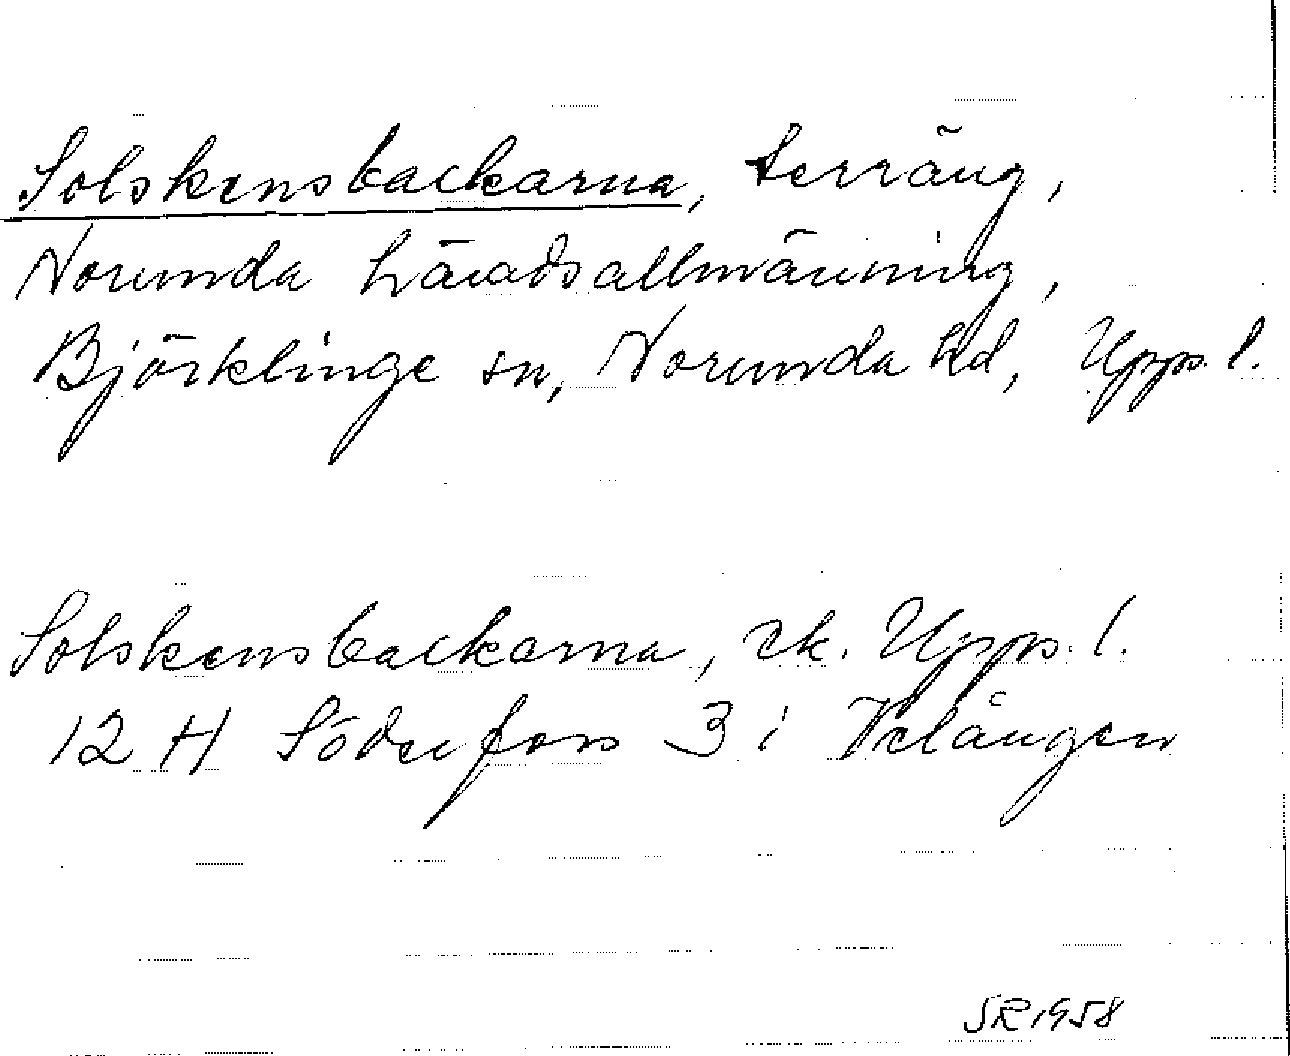 Solskensbackarna, terräng,
Norunda häradsallmänning,
Björklinge sn, Norunda hd, Uppl.
Solskensbackarna, ek. Uppl.
12 H Söderfors 3 i Velången
SR 1958